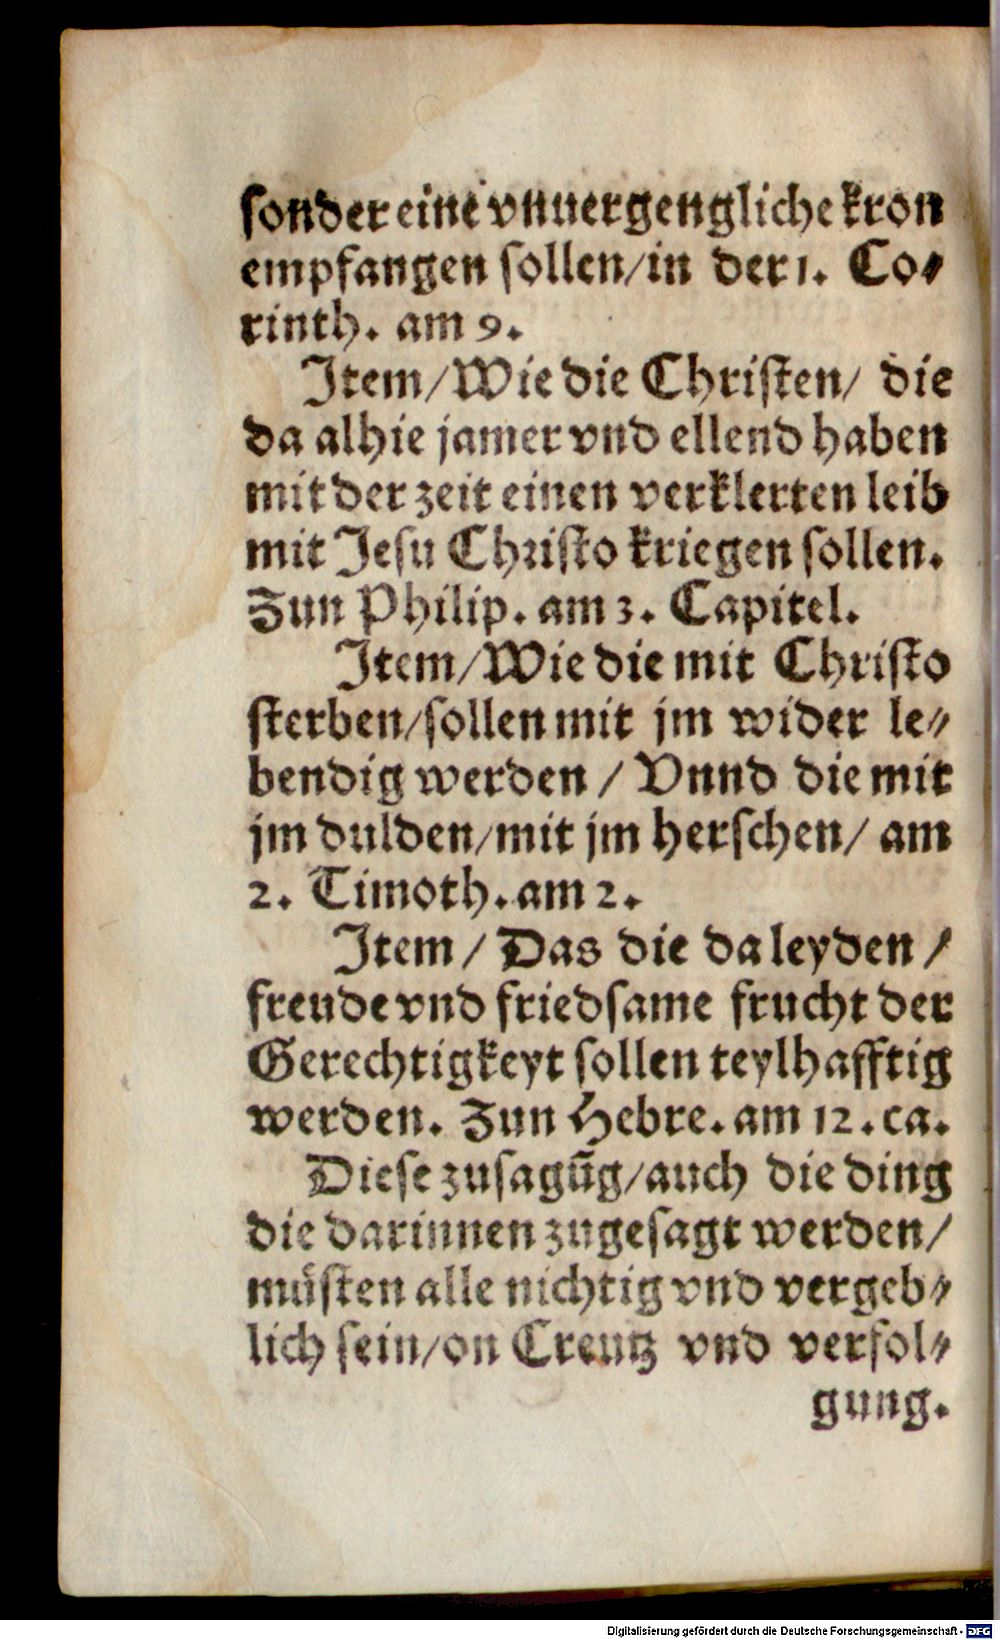 sonder eine vnuergengliche kron
empfangen sollen/in der 1. Co⸗
rinth. am 9.
Item/Wie die Christen/ die
da alhie jamer vnd ellend haben
mit der zeit einen verklerten leib
mit Jesu Christo kriegen sollen.
Zun Philip. am 3. Capitel.
Item/Wie die mit Christo
sterben/sollen mit jm wider le⸗
bendig werden / Vnnd die mit
jm dulden/mit jm herschen/ am
2. Timoth. am 2.
Item / Das die da leyden /
freude vnd friedsame frucht der
Gerechtigkeyt sollen teylhafftig
werden. Zun Hebre. am 12. ca.
Diese zusagūg/auch die ding
die darinnen zugesagt werden/
müsten alle nichtig vnd vergeb⸗
lich sein/on Creutz vnd verfol⸗
gung.
Digitalisierung gefördert durch die Deutsche Forschungsgemeinschaft - DFG